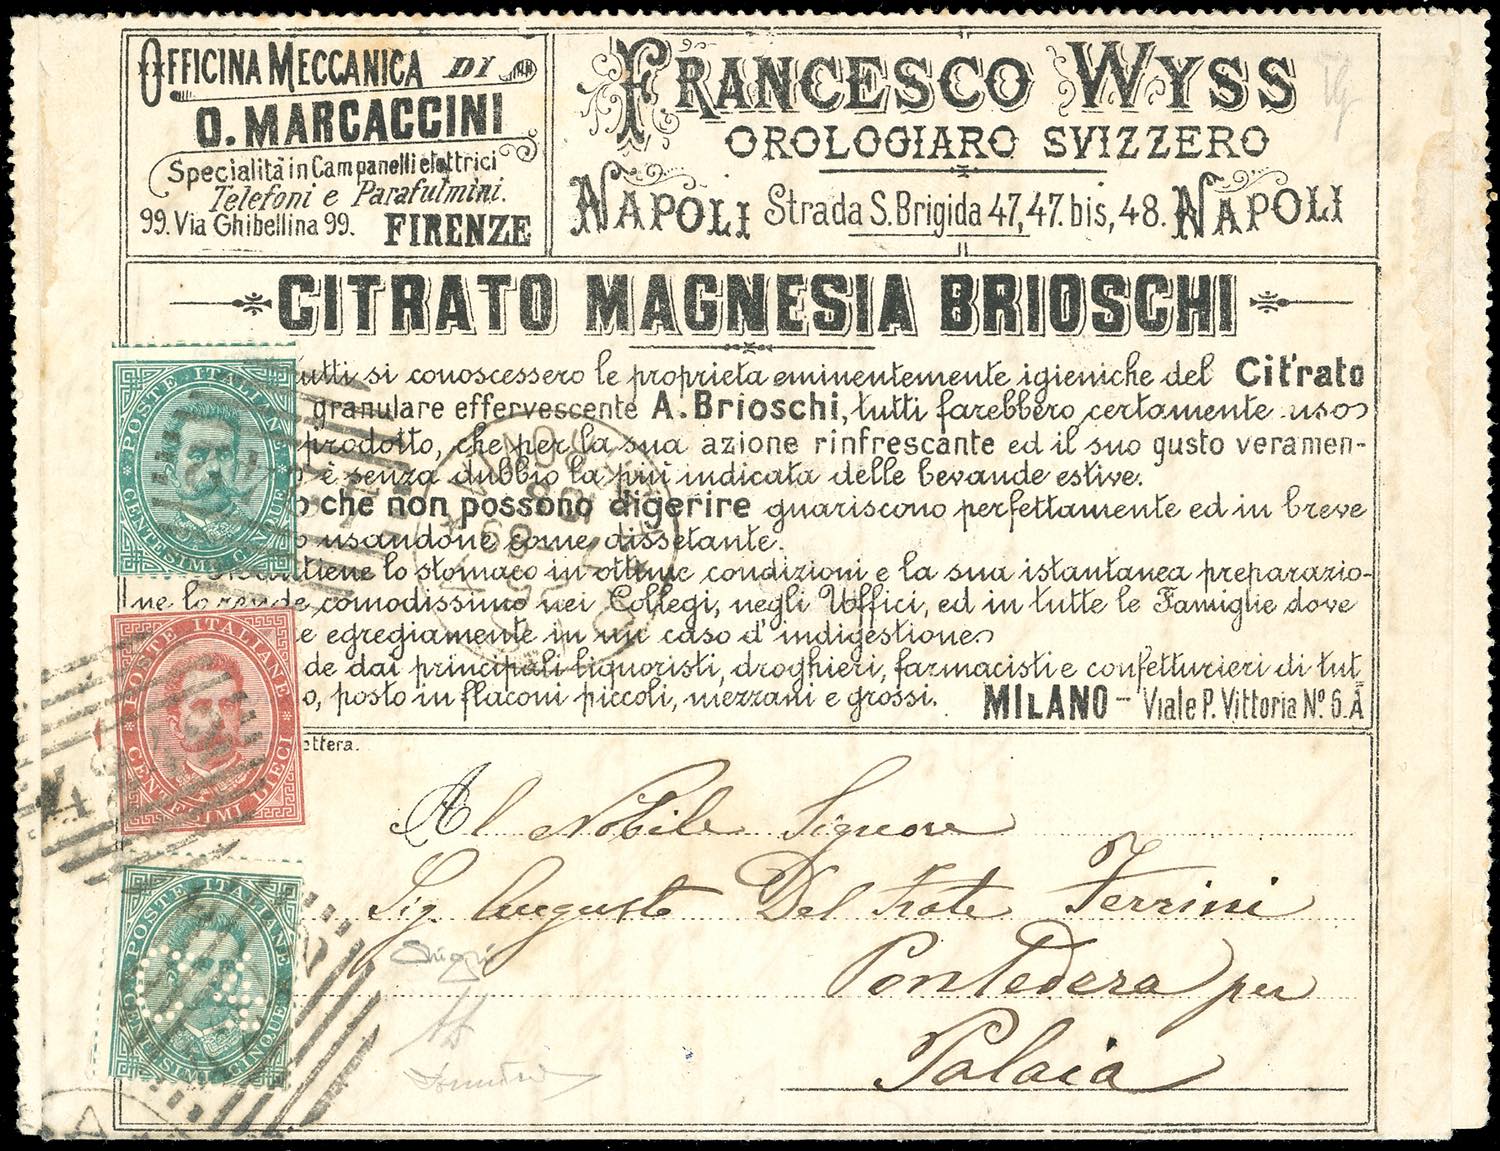 OFFICINA MECCANICA DI
O. MARCACCINI
Specialità in Campanelli elettrici
Telefoni e Parafulmini.
99. Via Ghibellina 99. FIRENZE
FRANCESCO WYSS
OROLOGIARO SVIZZERO
NAPOLI Strada S. Brigida 47, 47. bis, 48. NAPOLI
CITRATO MAGNESIA BRIOSCHI
tutti si conoscessero le proprieta eminentemente igieniche del Citrato
granulare effervescente A. Brioschi, tutti farebbero certamente uso
prodotto, che per la sua azione rinfrescante ed il suo gusto veramen-
è senza dubbio la piú indicata delle bevande estive.
che non possono digerire guariscono perfettamente ed in breve
usandone come dissetante.
lo stomaco in ottime condizioni e la sua istantanea preparazio-
ne lo rende comodissimo nei Collegi, negli Uffici, ed in tutte le Famiglie dove
egregiamente in un caso d'indigestione
de dai principali liquoristi, droghieri, farmacisti e confetturieri di tut
o, posto in flaconi piccoli, mezzani e grossi. MILANO - Viale P. Vittoria Nº 6. A
ettera.
POSTE ITALIANE
CENTESIMI CINQUE
POSTE ITALIANE
CENTESIMI DIECI
POSTE ITALIANE
CENTESIMI CINQUE
Al Nobile Signore
Sig. Augusto Del Frate Ferrini
Pontedera per
Palaia